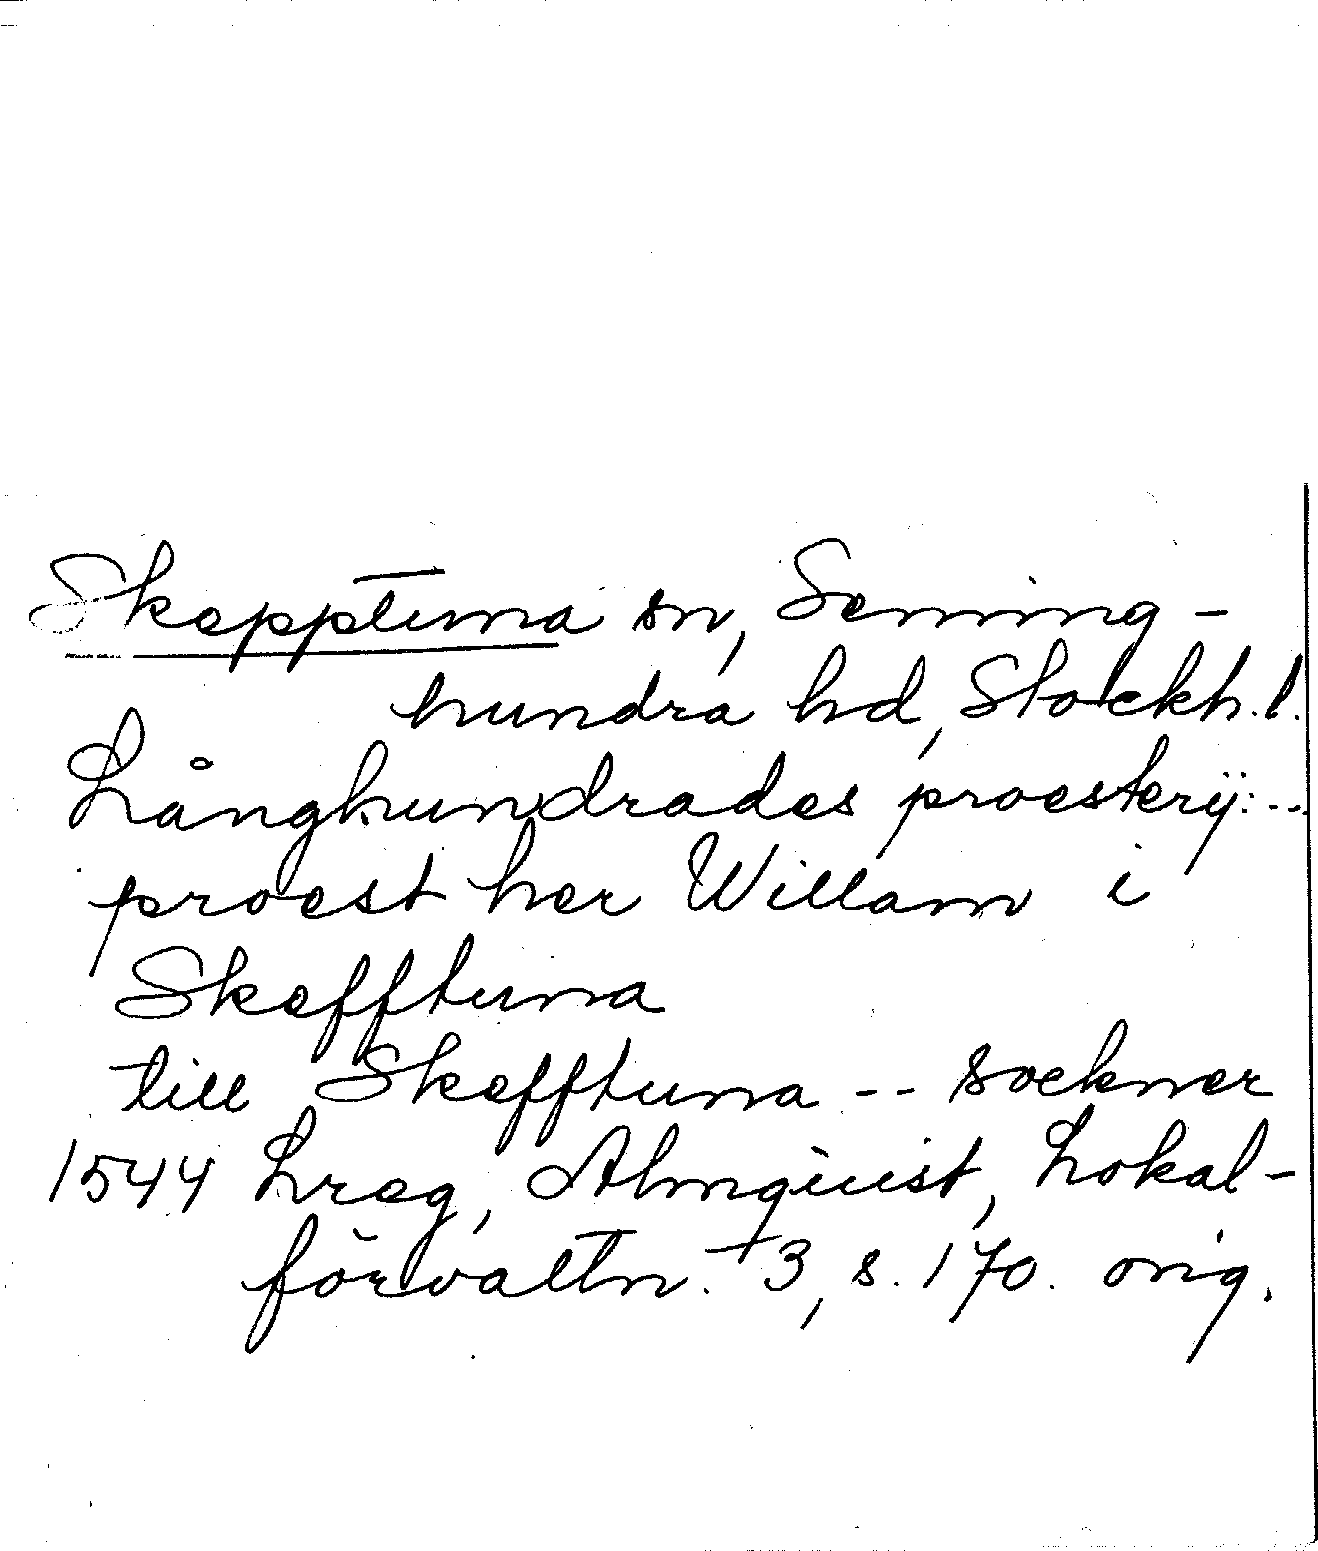 Skepptuna sn, Seming-
hundra hd, Stockh. l.
Långhundrades proesterij: --
proest her Willam i
Skefftuna
till Skefftuna -- sockner
1544 Lreg, Almquist, Lokal-
förvaltn. 3, s. 170. orig.